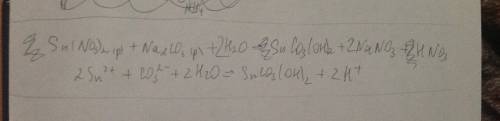 Sn(NO3)2(р) + Na2CO3(р) + 2H2O → Sn2CO3(OH)2 + 2NaNO3 + 2HNO3
2Sn2+ + CO3 2- + 2H2O = Sn2CO3(OH)2 + 2H+